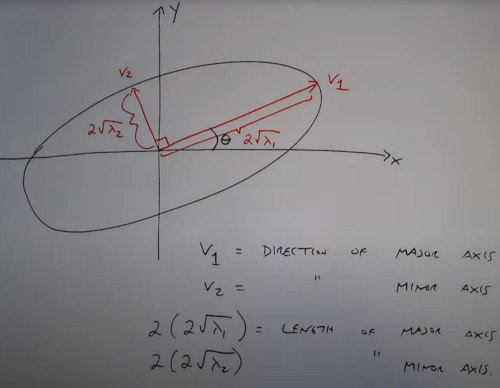 Y
V2
V1
2√λ2
θ
2√λ1
X
V1 = DIRECTION OF MAJOR AXIS
V2 = " MINOR AXIS
2(2√λ1) = LENGTH OF MAJOR AXIS
2(2√λ2) " MINOR AXIS.